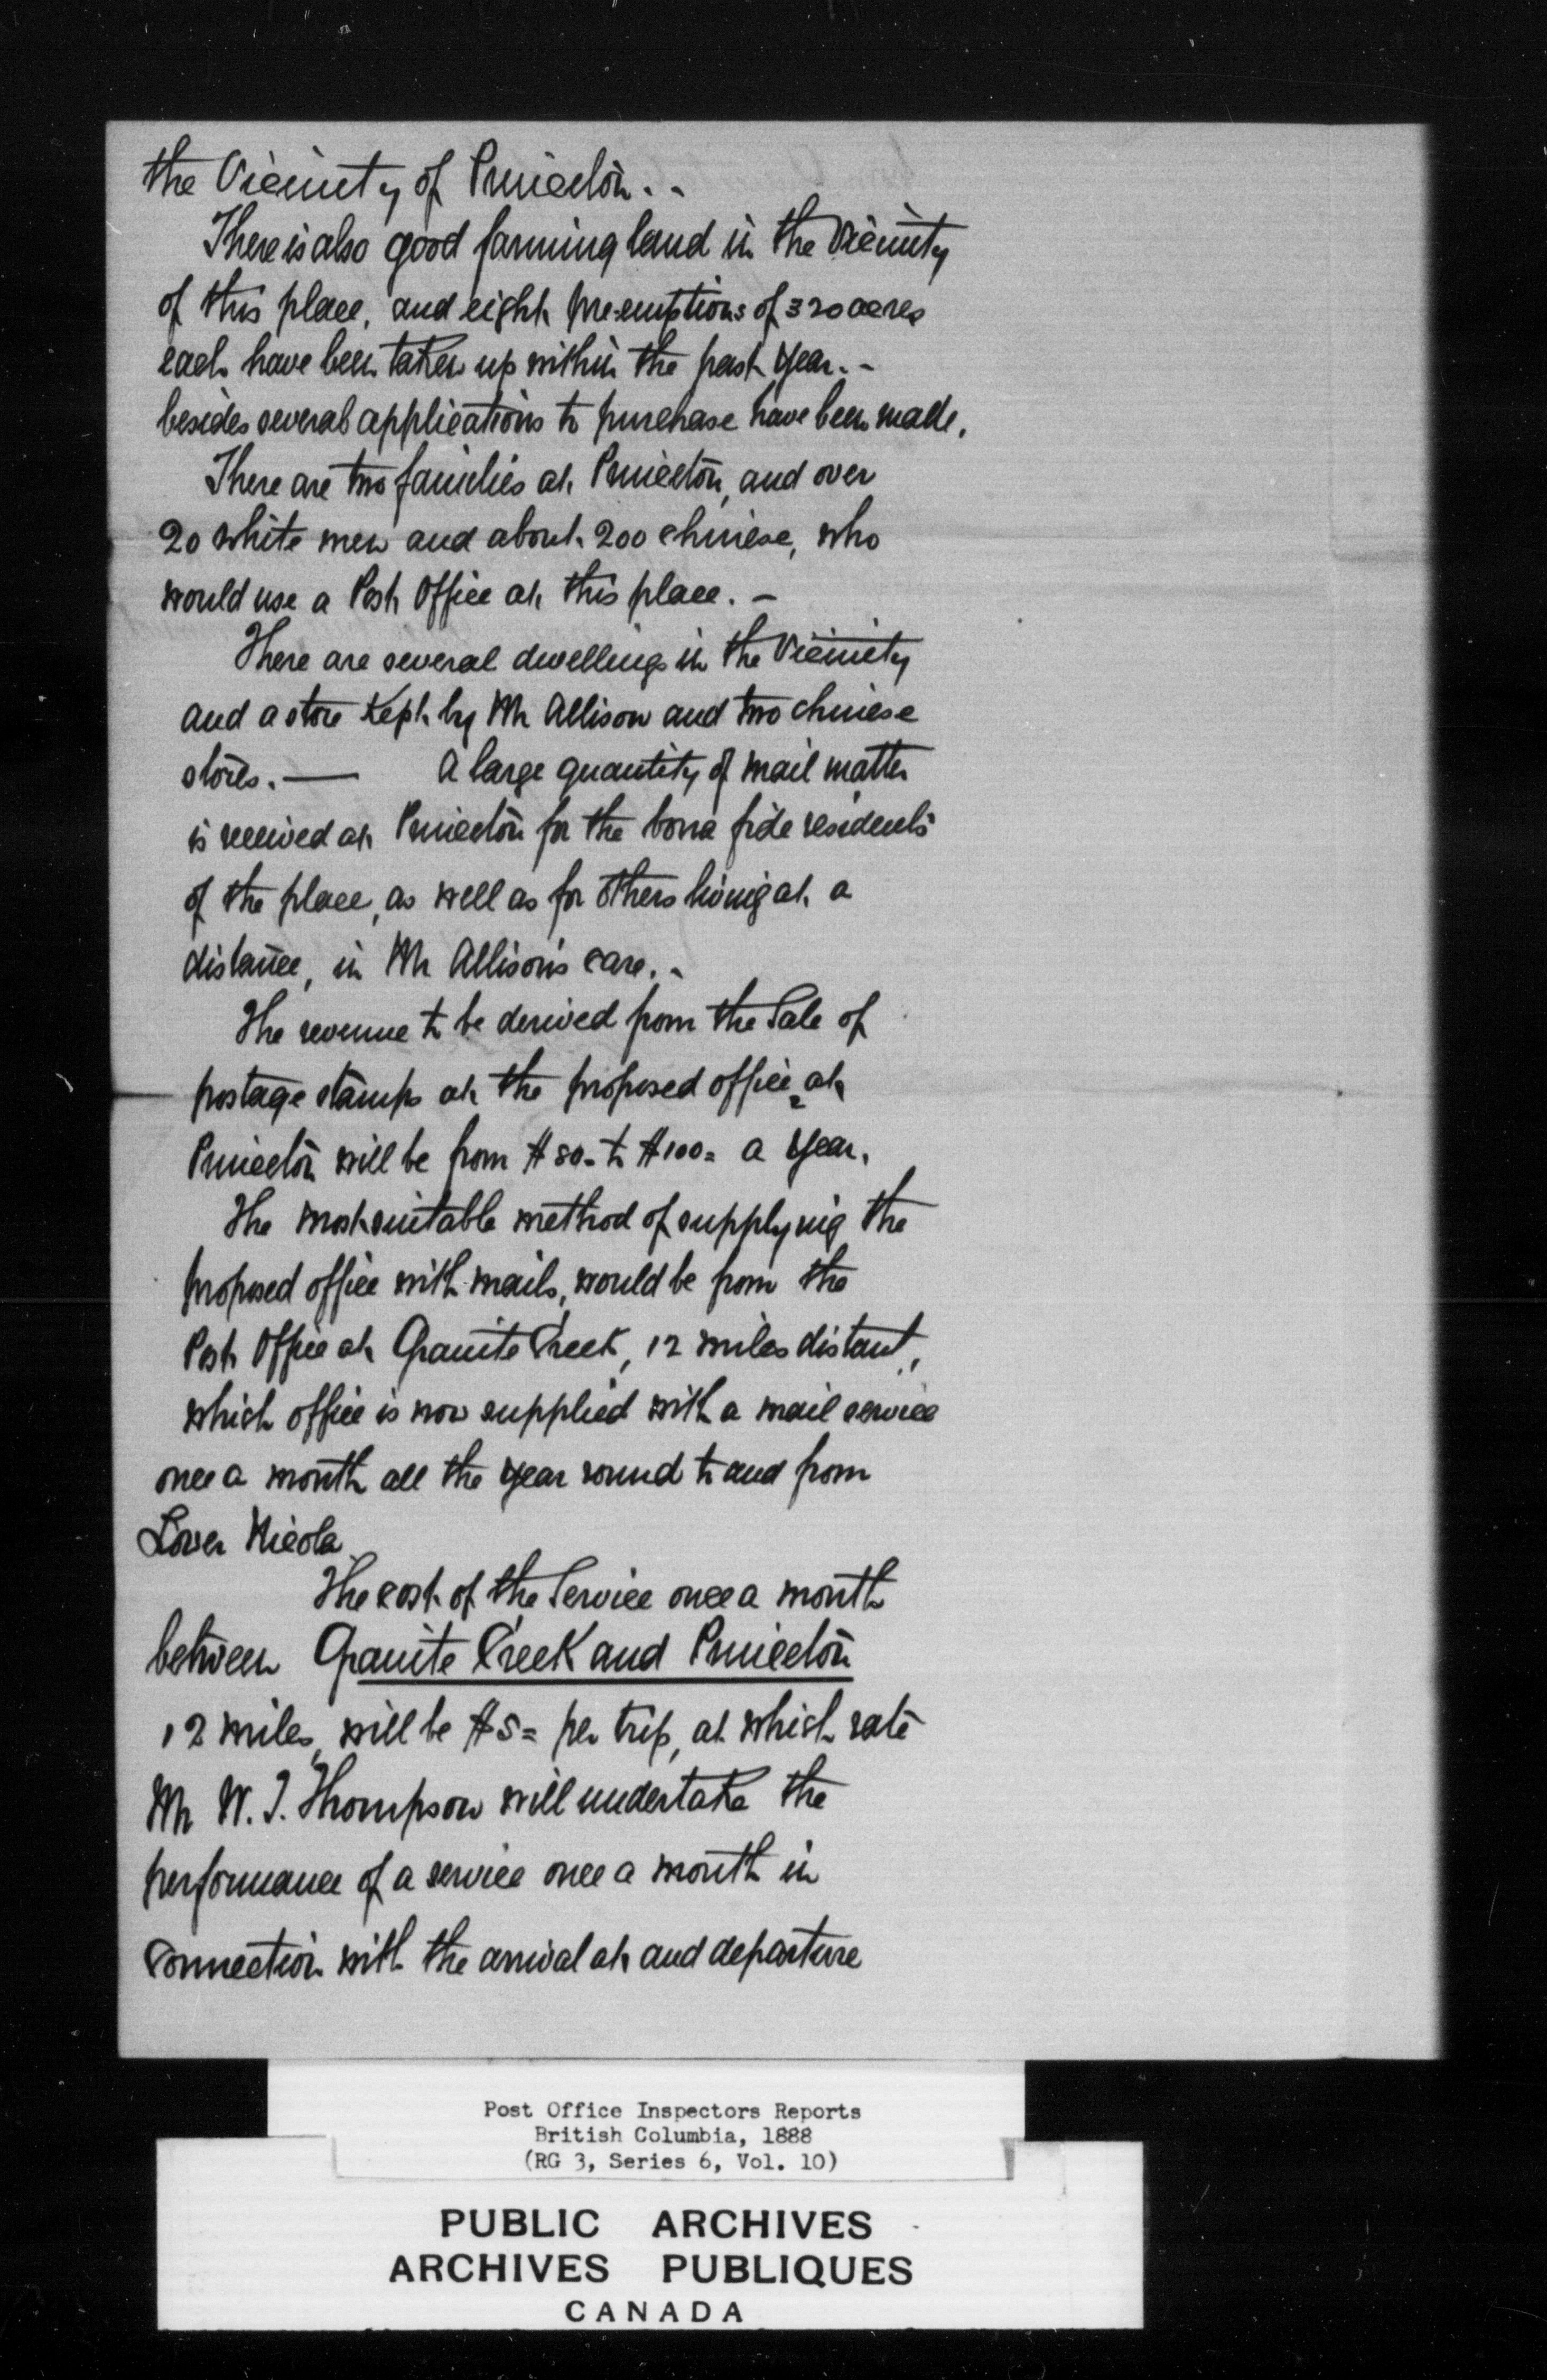 the Vicinity of Princeton. -
There is also good farming land in the Vicinity
of this place, and eight pre-emptions of 320 acres
each have been taken up within the past year. -
besides several applications to purchase have been made.
There are two families at Princeton, and over
20 white men and about 200 chinese, who
would use a Post Office at this place. -
There are several dwellings in the Vicinity
and a store kept by Mr Allison and two chinese
stores. — A large quantity of mail matter
is received at Princeton for the bona fide residents
of the place, as well as for others living at a
distance, in Mr Allison's care. -
The revenue to be derived from the Sale of
postage stamps at the proposed office at
Princeton will be from $80- to $100= a year.
The most suitable method of supplying the
proposed office with mails, would be from the
Post Office at Granite Creek, 12 miles distant,
which office is now supplied with a mail service
once a month all the year round to and from
Lower Nicola
The cost of the Service once a month
between Granite Creek and Princeton
12 miles, will be $5= per trip, at which rate
Mr W. J. Thompson will undertake the
performance of a service once a month in
Connection with the arrival at and departure
Post Office Inspectors Reports
British Columbia, 1888
(RG 3, Series 6, Vol. 10)
PUBLIC ARCHIVES
ARCHIVES PUBLIQUES
CANADA